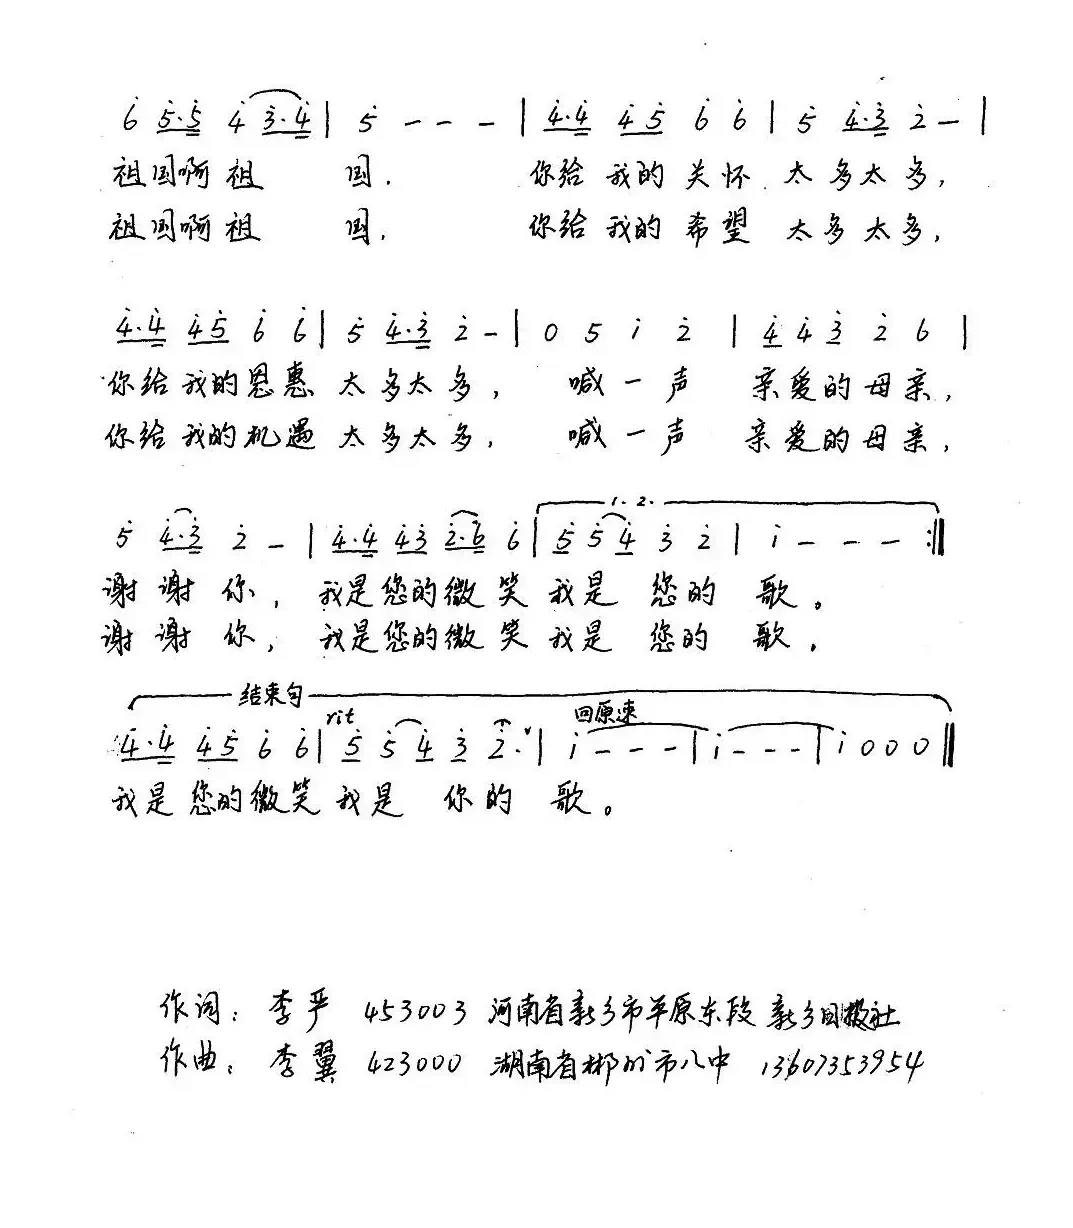 6̇ 5̇·5̇ 4̇ 3̇·4̇ | 5̇ - - - | 4̇·4̇ 4̇5̇ 6̇ 6̇ | 5̇ 4̇·3̇ 2̇ - |
祖国啊祖 国. 你给我的关怀太多太多,
祖国啊祖 国. 你给我的希望太多太多,
4̇·4̇ 4̇5̇ 6̇ 6̇ | 5̇ 4̇·3̇ 2̇ - | 0 5 1̇ 2̇ | 4̇ 4̇ 3̇ 2̇ 6 |
你给我的恩惠太多太多, 喊一声 亲爱的母亲,
你给我的机遇太多太多, 喊一声 亲爱的母亲,
1. 2.
5̇ 4̇·3̇ 2̇ - | 4̇·4̇ 4̇3̇ 2̇·6̇ 6̇ | 5̇ 5̇ 4̇ 3̇ 2̇ | 1̇ - - - :||
谢谢你, 我是您的微笑我是 您的 歌。
谢谢你, 我是您的微笑我是 您的 歌.
结束句
rit 回原速
4̇·4̇ 4̇5̇ 6̇ 6̇ | 5̇ 5̇ 4̇ 3̇ 2̇· | 1̇ - - - | 1̇ - - - | 1̇ 0 0 0 ||
我是您的微笑我是 你的 歌。
作词: 李严 453003 河南省新乡市平原东段 新乡日报社
作曲: 李翼 423000 湖南省郴州市八中 13607353954